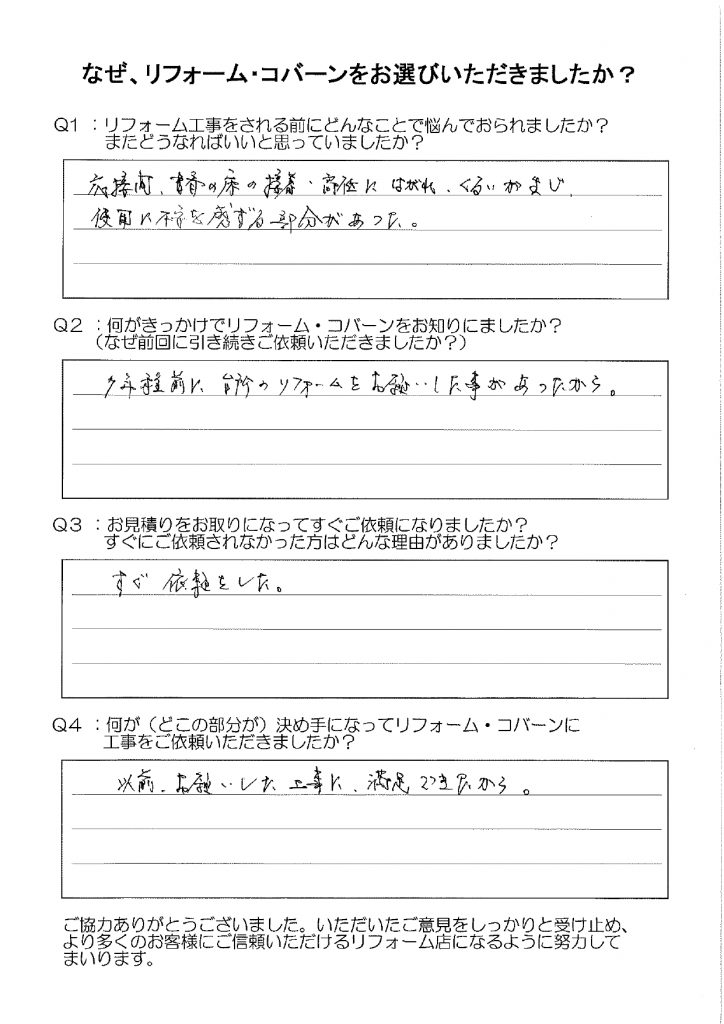 なぜ、リフォーム・コバーンをお選びいただきましたか？
Q1 ：リフォーム工事をされる前にどんなことで悩んでおられましたか？
またどうなればいいと思っていましたか？
応接間、書斎の床の接着・ にはがれ、くるいがまじ、
使用に不安を感ずる部分があった。
Q2 ：何がきっかけでリフォーム・コバーンをお知りにましたか？
（なぜ前回に引き続きご依頼いただきましたか？）
年程前に、台所のリフォームをお願いした事があったから。
Q3 ：お見積りをお取りになってすぐご依頼になりましたか？
すぐにご依頼されなかった方はどんな理由がありましたか？
すぐ依頼をした。
Q4 ：何が（どこの部分が）決め手になってリフォーム・コバーンに
工事をご依頼いただきましたか？
以前、お願いした工事に、満足できたから。
ご協力ありがとうございました。いただいたご意見をしっかりと受け止め、
より多くのお客様にご信頼いただけるリフォーム店になるように努力して
まいります。